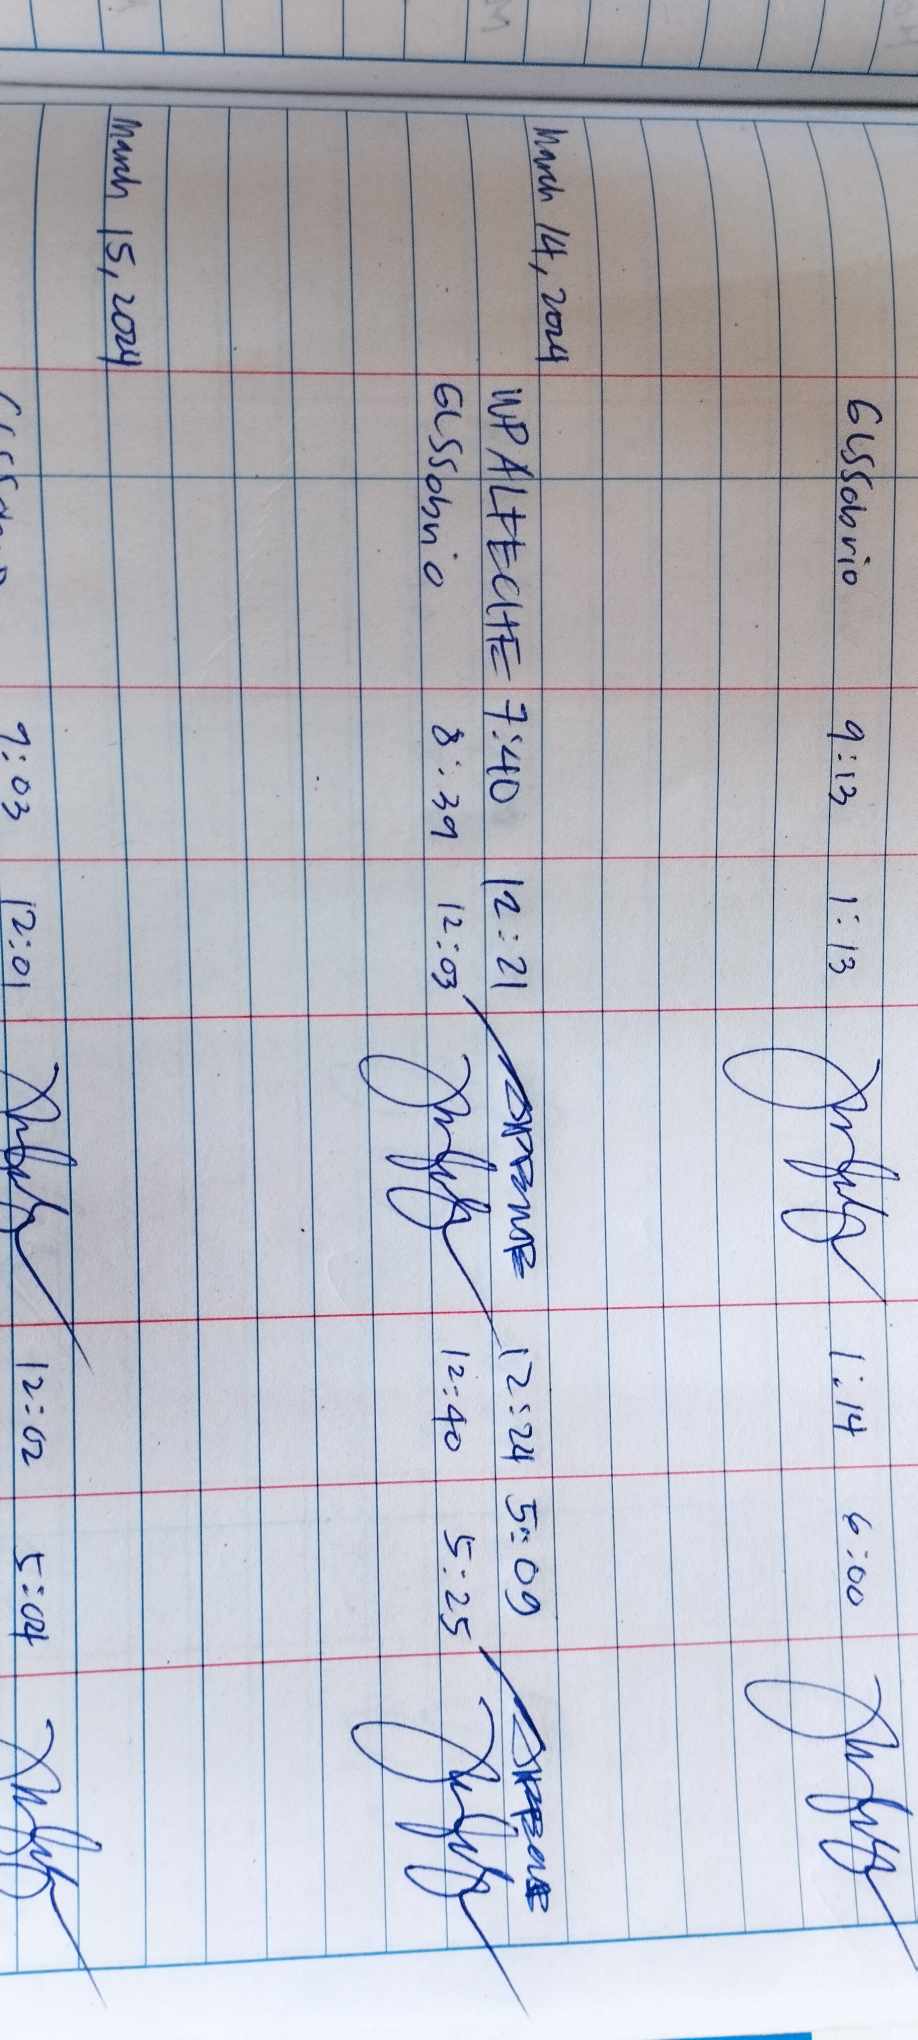 GLSSabrio 9:13 1:13 1:14 6:00
March 14, 2024
WPALFECHE 7:40 12:21 12:24 5:09
GLSSabrio 8:39 12:03 12:40 5:25
March 15, 2024
9:03 12:01 12:02 5:04